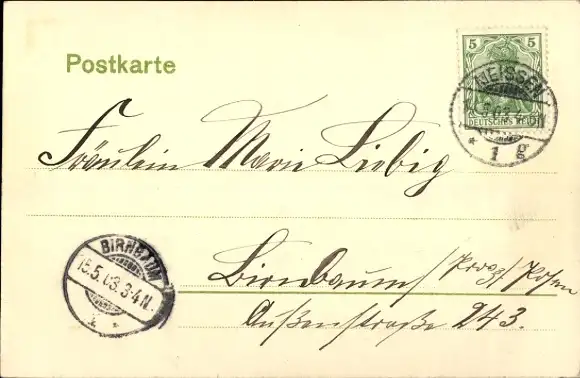 Postkarte
5 5
DEUTSCHES REICH
MEISSEN
1 g
Fräulein Marie Liebig
BIRNBAUM
15.5.03.3-4N.
Birnbaum / Prov. / Posen
Außenstraße 243.